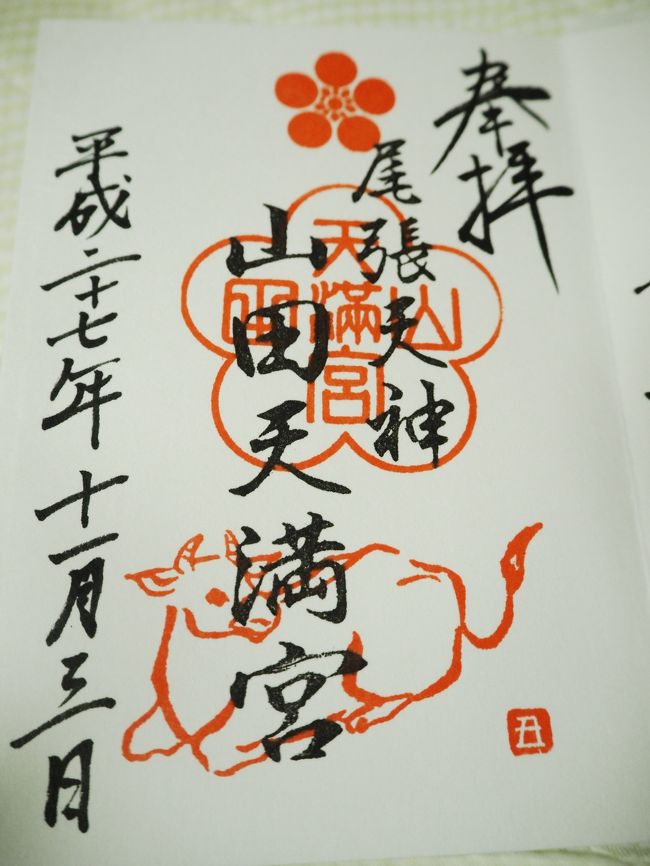 奉拝
尾張天神
山田天満宮
平成二十七年十一月三日
山田
天満宮
丑